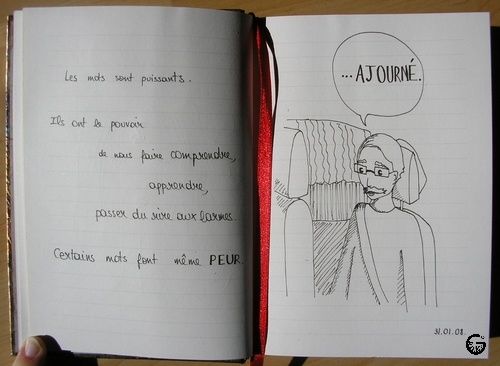 Les mots sont puissants.
Ils ont le pouvoir
de nous faire comprendre,
apprendre,
passer du rire aux larmes.
Certains mots font même PEUR.
...AJOURNÉ.
31.01.08.
G